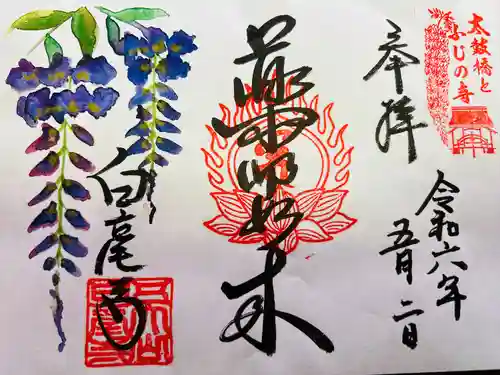 太鼓橋と
ふじの寺
奉拝
令和六年
五月二日
薬師如来
白毫寺